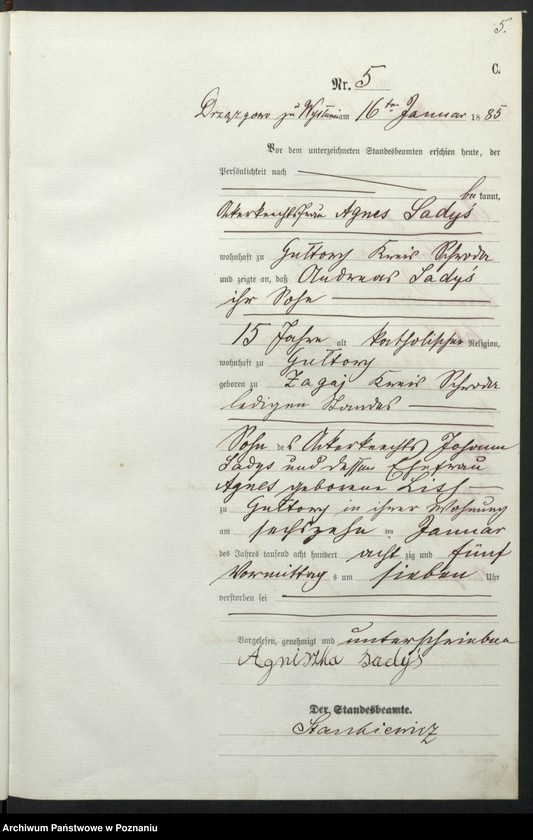 5.
C.
Nr. 5
am 16ten Januar 1885
Vor dem unterzeichneten Standesbeamten erschien heute, der
Persönlichkeit nach
be kannt,
Ackerknechtsfrau Agnes Ladyś
wohnhaft zu Gułtowy Kreis Schroda
und zeigte an, daß Andreas Ladyś
ihr Sohn
15 Jahre alt katholischer Religion,
wohnhaft zu Gułtowy
geboren zu Zagaj Kreis Schroda
ledigen Standes
Sohn des Ackerknechts Johann
Ladyś und dessen Ehefrau
Agnes geborene
zu Gułtowy in ihrer Wohnung
am sechszehn ten Januar
des Jahres tausend acht hundert acht zig und fünf
Vormittag s um sieben Uhr
verstorben sei
Vorgelesen, genehmigt und unterschrieben
Agniszka Ladyś
Der Standesbeamte.
Stankiewicz
Archiwum Państwowe w Poznaniu